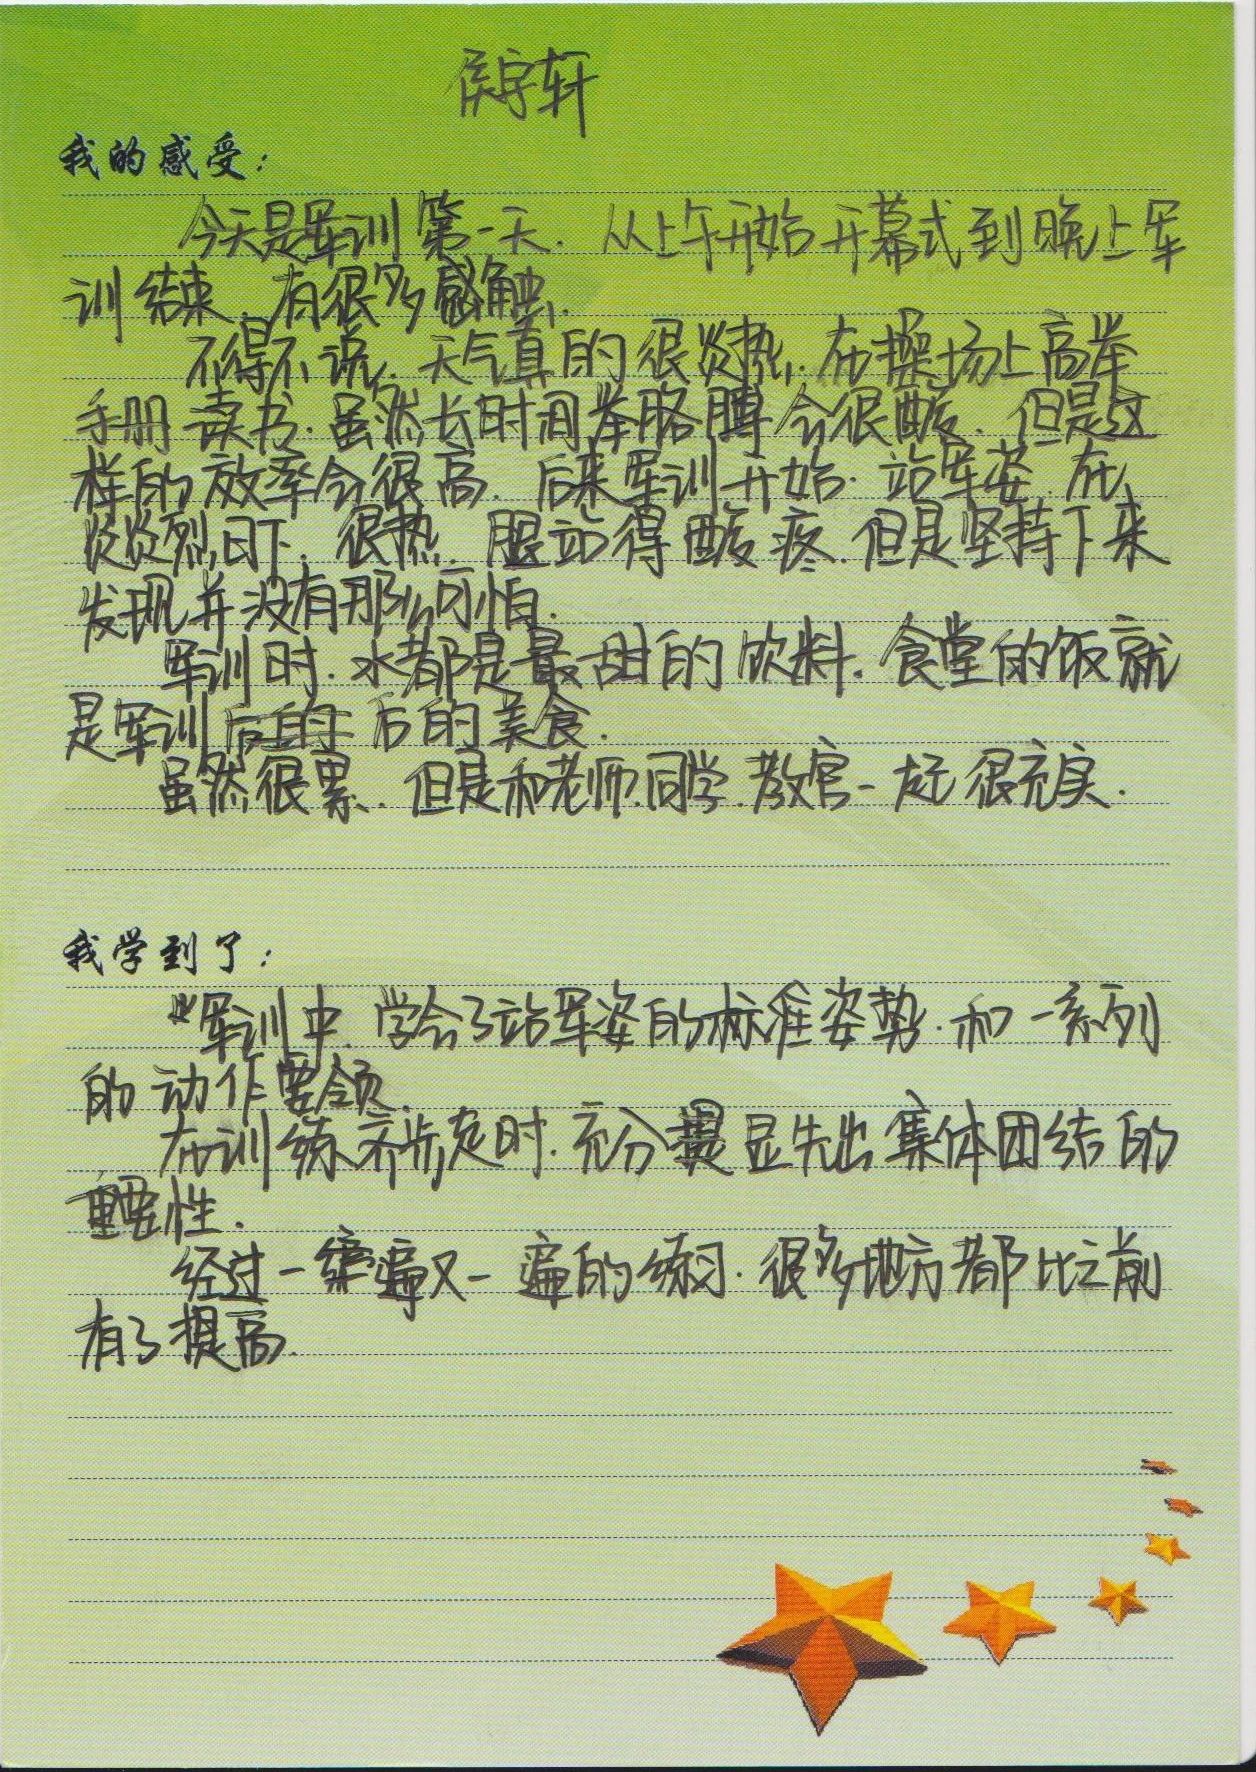 侯宇轩
我的感受：
今天是军训第一天.从上午开始开幕式到晚上军
训结束.有很多感触.
不得不说.天气真的很炎热.在操场上高举
手册读书.虽然长时间举胳膊会很酸.但是这
样的效率会很高.后来军训开始.站军姿.在
炎炎烈日下.很热.腿站得酸疼.但是坚持下来
发现并没有那么可怕.
军训时.水都是最甜的饮料.食堂的饭就
是军训后的美食.
虽然很累.但是和老师.同学.教官一起很充实.
我学到了：
军训中.学会了站军姿的标准姿势.和一系列
的动作要领.
在训练齐步走时.充分显先出集体团结的
重要性.
经过一遍又一遍的练习.很多地方都比之前
有了提高.